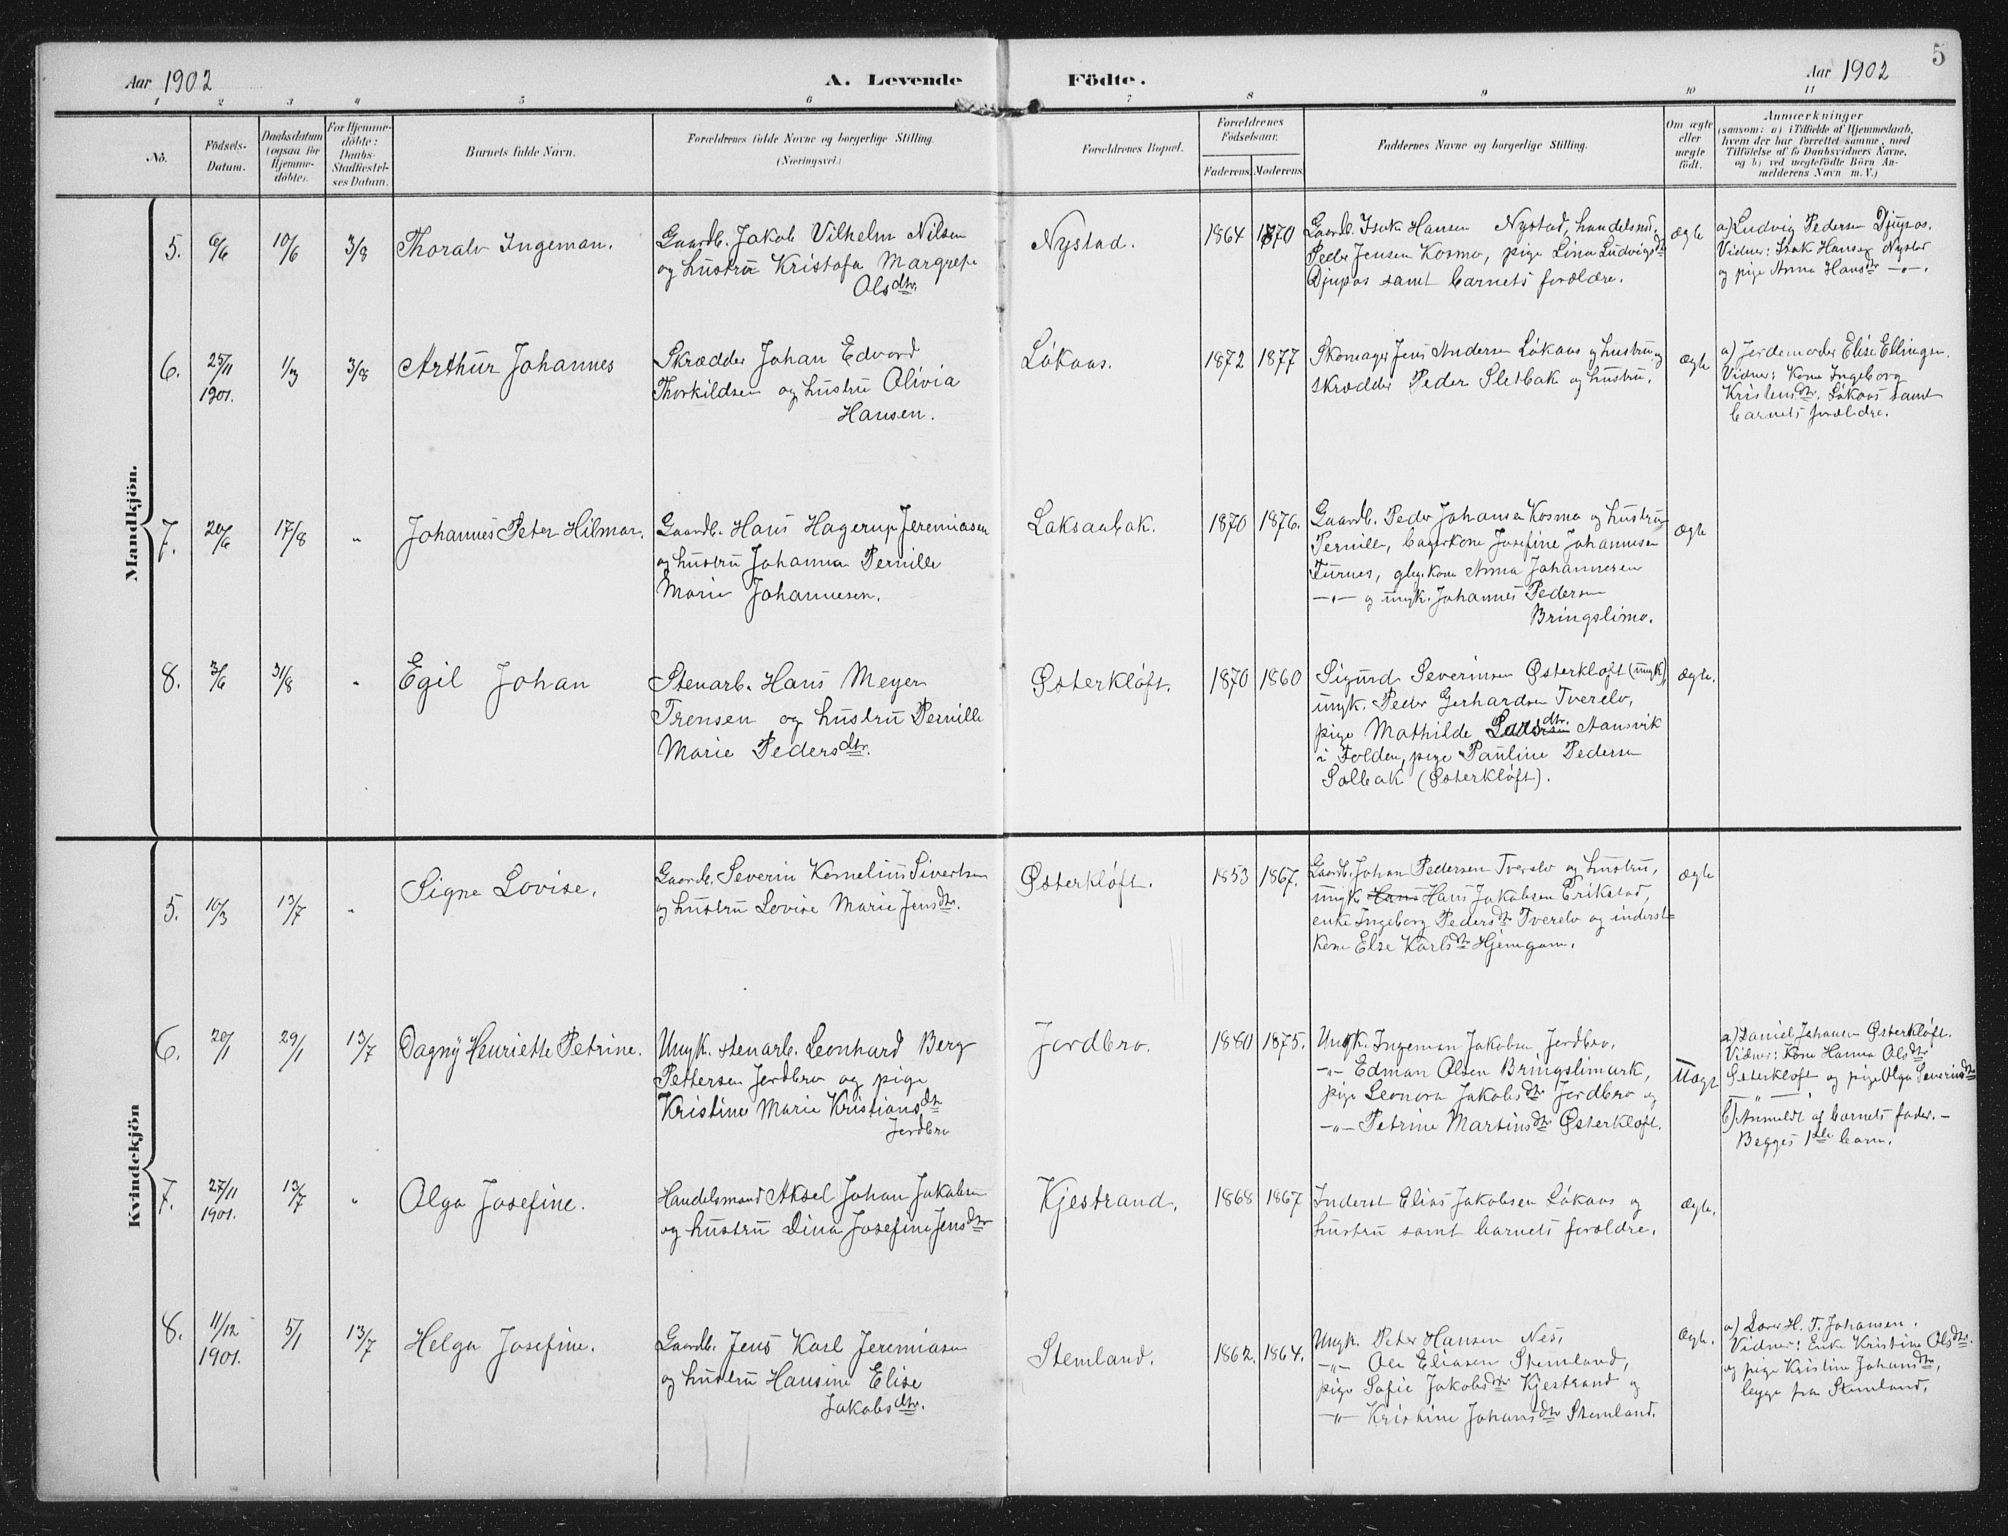 5
Aar 1902 A. Levende Födte. Aar 1902
1 2 3 4 5 6 7 8 9 10 11
No.
Födsels-
Datum.
Daabsdatum
(ogsaa for
Hjemme-
döbte).
For Hjemme-
döbte:
Daabs-
Stadfæstel-
ses Datum.
Barnets fulde Navn.
Forældrenes fulde Navne og borgerlige Stilling.
(Næringsvei.)
Forældrenes Bopæl.
Forældrenes
Födselsaar.
Faderens. Moderens.
Faddernes Navne og borgerlige Stilling.
Om ægte
eller
uægte
födt.
Anmærkninger
(saasom: a) i Tilfælde af Hjemmedaab,
hvem der har forrettet samme, med
Tilföielse af to Daabsvidners Navne,
og b) ved uægtefödte Börn An-
melderens Navn m. V.)
Mandkjön.
5. 6/6 10/6 3/8
Thoralv Ingeman.
Gaardb. Jakob Vilhelm Nilsen
og hustru Kristofa Margrete
Olsdtr.
Nystad.
1864 1870
Gaardb. Isak Hansen Nystad, handelsmd.
Peder Jensen Kosmo, pige Lina Ludvigsdtr
Djupos samt barnets forældre.
ægte
a) Ludvig Pedersen Djupos.
Vidner: Isak Hansen Nystad
og pige Anna Hansdtr —"—.
6. 25/11 1/3 3/8
1901.
Arthur Johannes
Skrædder Johan Edvard
Thorkildsen og hustru Olivia
Hansen.
Løkaas.
1872 1877
Skomager Jens Andersen Løkaas og hustru, og
skrædder Peder Sletbak og hustru.
ægte
a) Jordemoder Elise Ellingsen.
Vidner: Kone Ingeborg
Kristensdtr. Løkaas samt
barnets forældre.
7. 20/6 17/8 "
Johannes Peter Hilmar.
Gaardb. Hans Hagerup Jeremiasen
og hustru Johanna Pernille
Marie Johannesen.
Laksaabak.
1870 1876.
Gaardb. Peder Johansen Kosmo og hustru
Pernille, bagerkone Josefine Johannesen
Furnes, gbr.kone Anna Johannesen
—"— og ungk. Johannes Pedersen
Bringslimo.
ægte
8. 3/6 31/8 "
Egil Johan
Stenarb. Hans Meyer
Trensen og hustru Pernille
Marie Pedersdtr.
Østerkløft.
1870 1860
Sigurd Severinsen Østerkløft (ungk),
ungk. Peder Gerhardsen Tverelv,
pige Mathilde Larsdtr. Aansvik
i Folden, pige Pauline Pedersen
Solbak (Østerkløft).
ægte.
Kvindekjön
5. 10/3 13/7 "
Signe Lovise.
Gaardb. Severin Kornelius Sivertsen
og hustru Lovise Marie Jensdtr.
Østerkløft.
1853 1867.
Gaardb. Johan Pedersen Tverelv og hustru,
ungk. Hans Hans Jakobsen Erikstad,
enke Ingeborg Pedersdtr Tverelv og inderst-
kone Else Karlsdtr Hjemgam.
ægte
6. 20/1 29/1 13/7
Dagny Henriette Petrine.
Ungk. stenarb. Leonhard Berg
Pettersen Jordbro og pige
Kristine Marie Kristiansdtr
Jordbro
Jordbro.
1880 1875.
Ungk. Ingeman Jakobsen Jordbro,
—"— Edman Olsen Bringslimark,
pige Leonora Jakobsdtr Jordbro og
—"— Petrine Martinsdtr Østerkløft.
Uægte
a) Daniel Johansen Østerkløft.
Vidner: Kone Hanna Olsdtr
Østerkløft og pige Olga Severinsdtr
— " —
b) Anmeldt af barnets fader. —
Begges 1ste barn.
7. 27/11 13/7 "
1901.
Olga Josefine.
Handelsmand Aksel Johan Jakobsen
og hustru Dina Josefine Jensdtr
Kjestrand.
1868 1867
Inderst Elias Jakobsen Løkaas og
hustru samt barnets forældre.
ægte.
8. 11/12 5/1 13/7
1901.
Helga Josefine.
Gaardb. Jens Karl Jeremiasen
og hustru Hansine Elise
Jakobsdtr.
Stemland.
1862. 1864.
Ungk. Peter Hansen Nes,
—"— Ole Eliasen Stemland,
pige Sofie Jakobsdtr Kjestrand og
—"— Kristine Johansdtr Stemland.
ægte.
a) Lærer H. T. Johansen.
Vidner: Enke Kristine Olsdtr.
og pige Kristine Johansdtr,
begge fra Stemland.